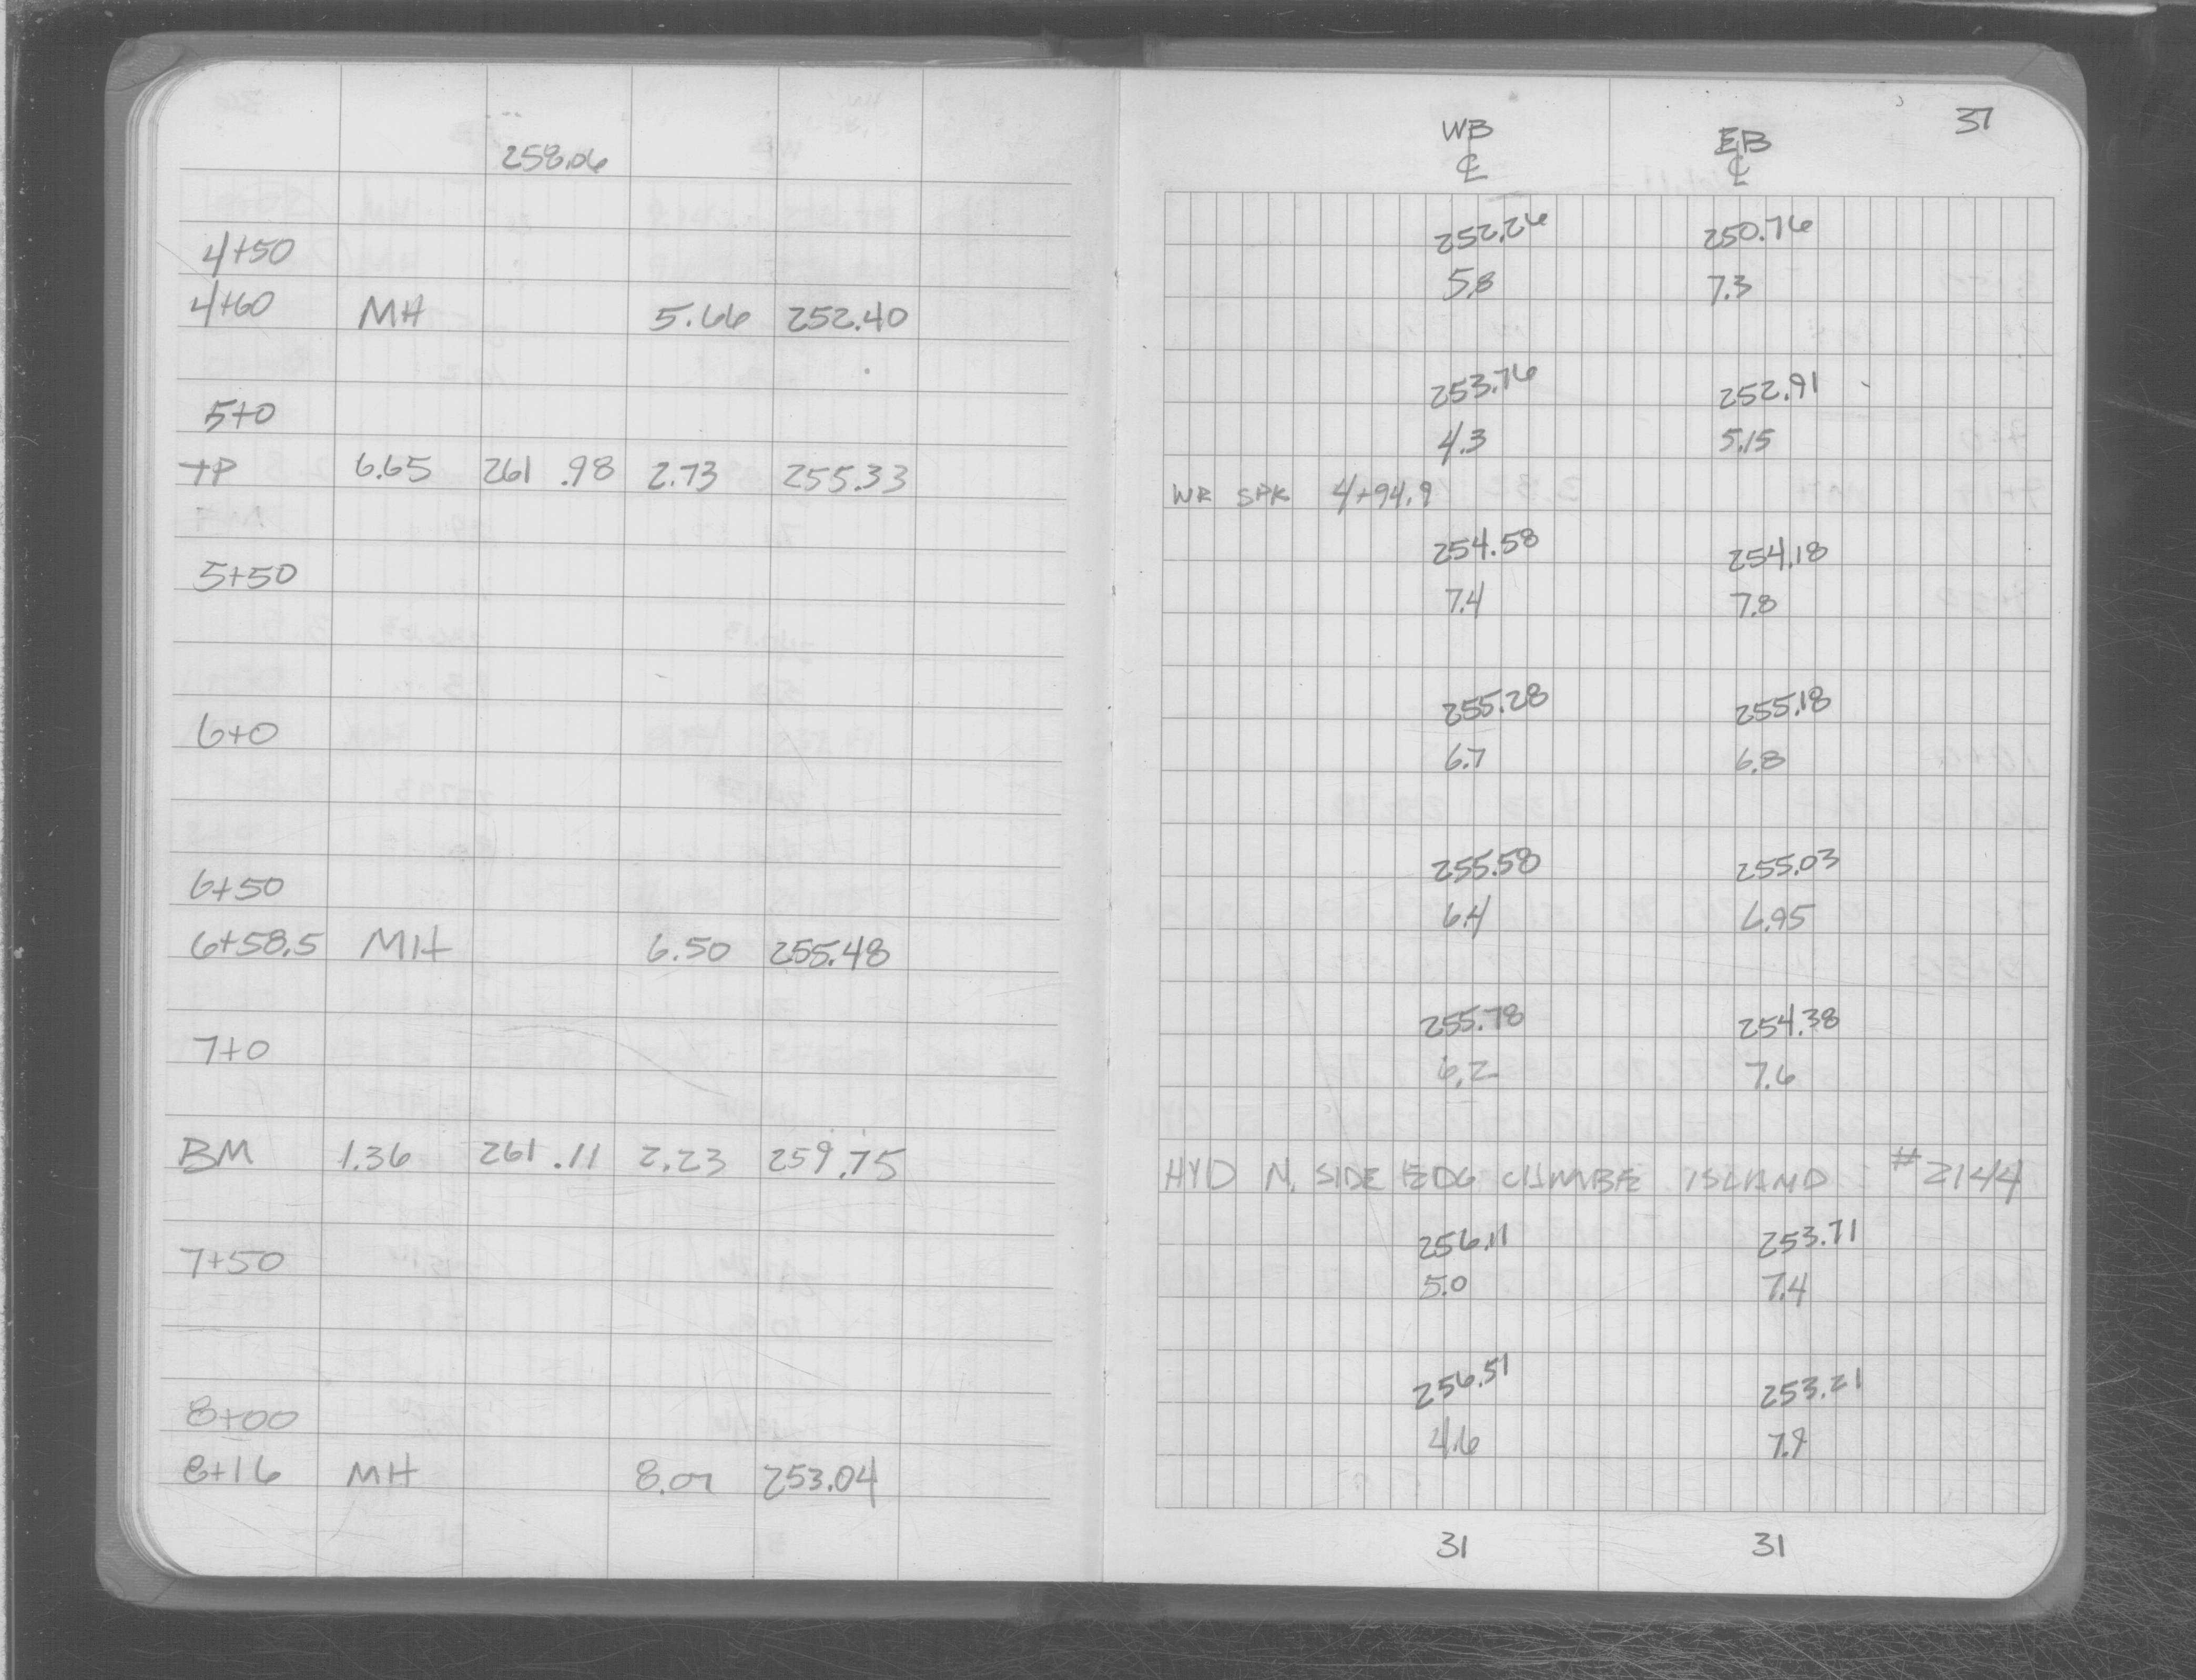 258.06
4+50
4+60 MH 5.66 252.40
5+0
TP 6.65 261.98 2.73 255.33
5+50
6+0
6+50
6+58.5 MH 6.50 255.48
7+0
BM 1.36 261.11 2.23 259.75
7+50
8+00
8+16 MH 8.07 253.04
37
WB EB
℄ ℄
252.26 250.76
5.8 7.3
253.76 252.91
4.3 5.15
WR SPK 4+94.9
254.58 254.18
7.4 7.8
255.28 255.18
6.7 6.8
255.58 255.03
6.4 6.95
255.78 254.38
6.2 7.6
HYD N. SIDE ISLAND #2144
256.11 253.71
5.0 7.4
256.51 253.21
4.6 7.9
31 31